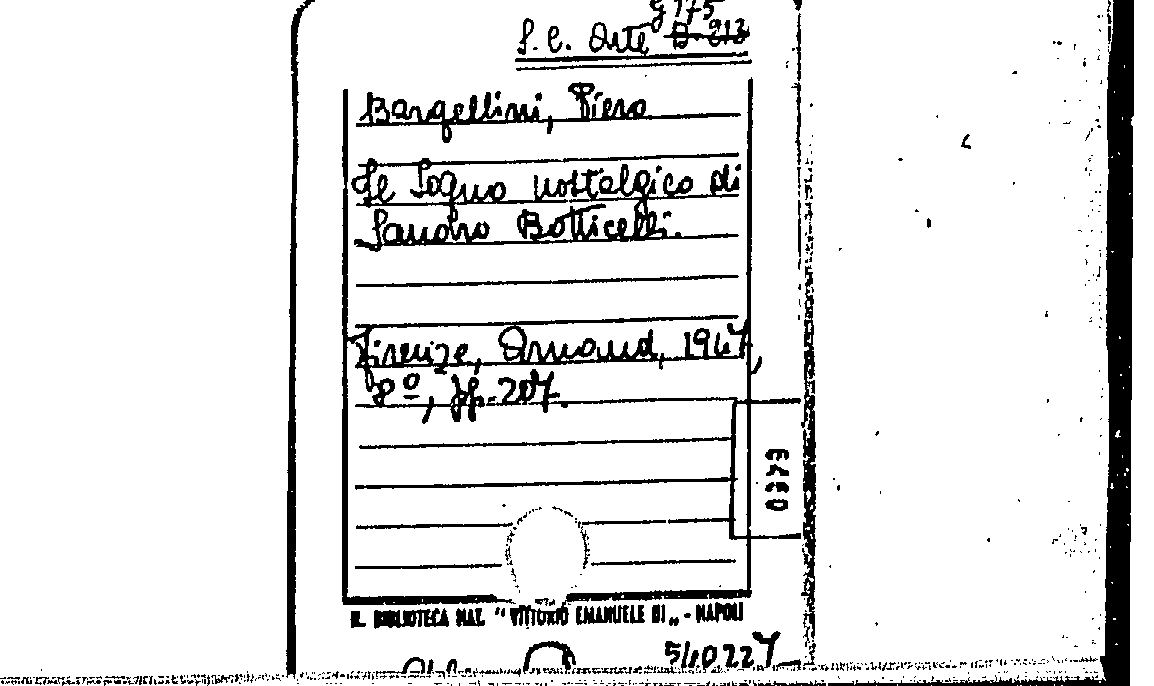 G 175
S. C. Arte B-213
Bargellini, Piero
Il Sogno nostalgico di
Sandro Botticelli.
Firenze, Arnaud, 1947,
8º, pp. 207.
0949
R. BIBLIOTECA NAZ. “VITTORIO EMANUELE III„ - NAPOLI
540227